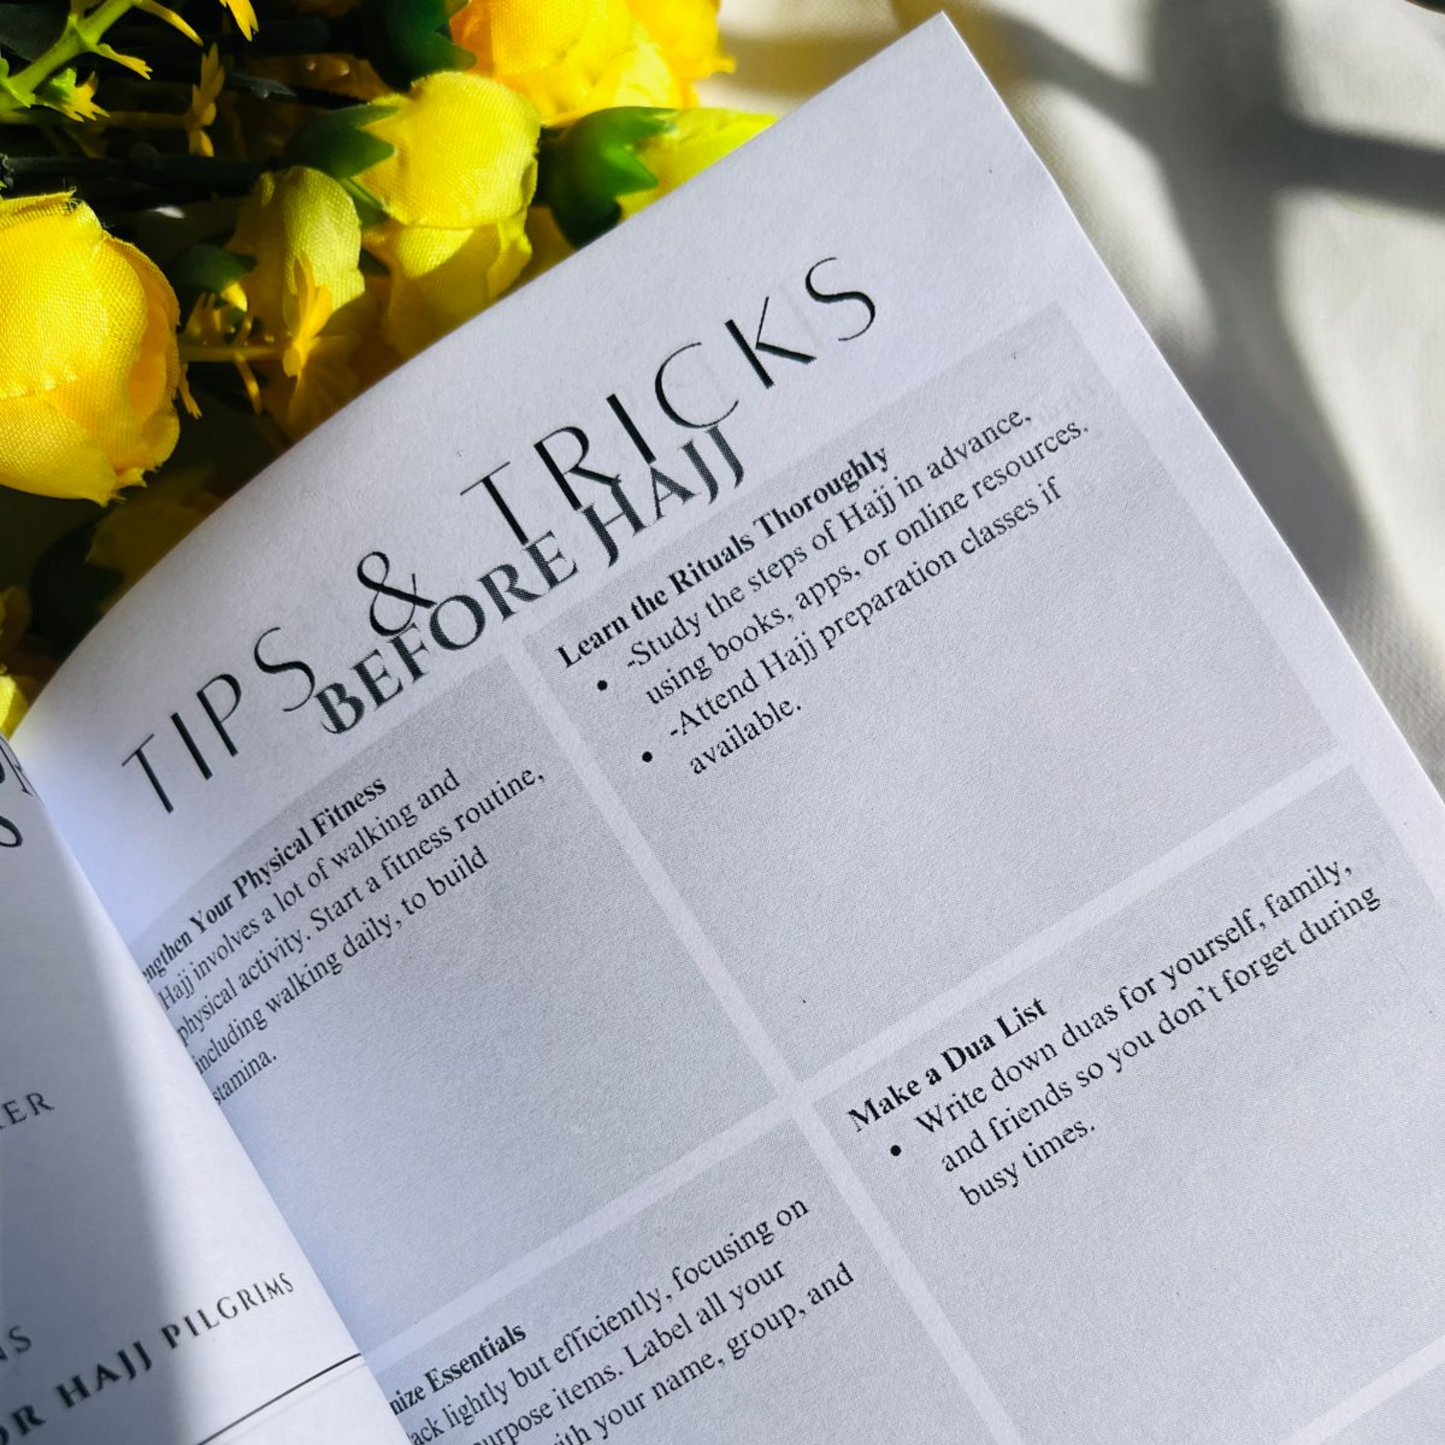 TIPS & TRICKS
BEFORE HAJJ
Your Physical Fitness
Hajj involves a lot of walking and
physical activity. Start a fitness routine,
including walking daily, to build
stamina.
Learn the Rituals Thoroughly
• -Study the steps of Hajj in advance,
using books, apps, or online resources.
• -Attend Hajj preparation classes if
available.
Essentials
lightly but efficiently, focusing on
items. Label all your
your name, group, and
Make a Dua List
• Write down duas for yourself, family,
and friends so you don't forget during
busy times.
HAJJ PILGRIMS